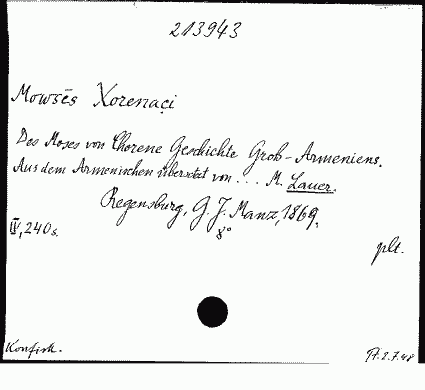 213943
Mowsēs Xorenac̣i
Des Moses von Chorene Geschichte Groß-Armeniens.
Aus dem Armenischen übersetzt von ... M. Lauer.
Regensburg, G. J. Manz, 1869.
IV, 240 s. 8°
plt.
Konfisk. 2.7.48